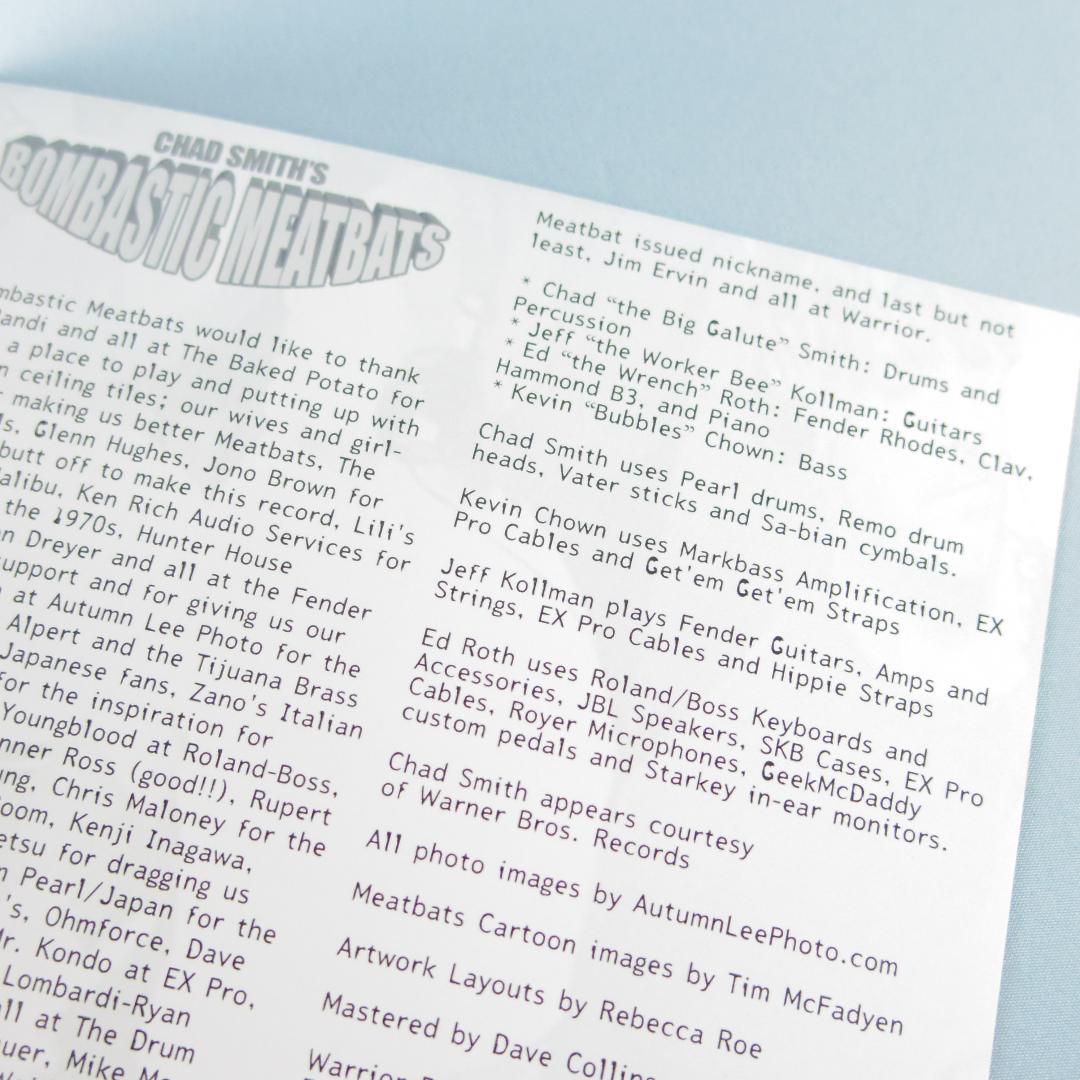 CHAD SMITH'S
BOMBASTIC MEATBATS
Meatbats would like to thank
and all at The Baked Potato for
a place to play and putting up with
ceiling tiles; our wives and girl-
making us better Meatbats, The
Glenn Hughes, Jono Brown for
butt off to make this record, Lili's
Ken Rich Audio Services for
the 1970s, Hunter House
Dreyer and all at the Fender
and for giving us our
at Autumn Lee Photo for the
Alpert and the Tijuana Brass
Japanese fans, Zano's Italian
for the inspiration for
Youngblood at Roland-Boss,
Ross (good!!), Rupert
Chris Maloney for the
Kenji Inagawa,
for dragging us
Pearl/Japan for the
Ohmforce, Dave
Kondo at EX Pro,
Lombardi-Ryan
at The Drum
Mike
Meatbat issued nickname, and last but not
least, Jim Ervin and all at Warrior.
* Chad “the Big Galute” Smith: Drums and
Percussion
* Jeff “the Worker Bee” Kollman: Guitars
* Ed “the Wrench” Roth: Fender Rhodes, Clav,
Hammond B3, and Piano
* Kevin “Bubbles” Chown: Bass
Chad Smith uses Pearl drums, Remo drum
heads, Vater sticks and Sa-bian cymbals.
Kevin Chown uses Markbass Amplification, EX
Pro Cables and Get'em Get'em Straps
Jeff Kollman plays Fender Guitars, Amps and
Strings, EX Pro Cables and Hippie Straps
Ed Roth uses Roland/Boss Keyboards and
Accessories, JBL Speakers, SKB Cases, EX Pro
Cables, Royer Microphones, GeekMcDaddy
custom pedals and Starkey in-ear monitors.
Chad Smith appears courtesy
of Warner Bros. Records
All photo images by AutumnLeePhoto.com
Meatbats Cartoon images by Tim McFadyen
Artwork Layouts by Rebecca Roe
Mastered by Dave Collins
Warrior